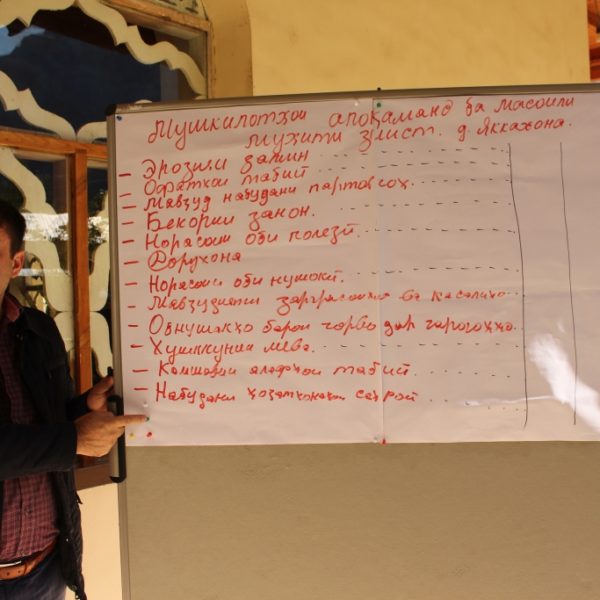 Мушкилотҳои алоқаманд ба масоили
муҳити зист. д. Яккахона.
- Эрозияи замин
- Офатҳои табий
- Мавҷуд набудани партовгоҳ.
- Бекории занон.
- Норасоии оби полезӣ.
- Дорухона
- Норасоии оби нушокӣ.
- Мавҷудияти зараррасонҳо ва касалиҳо
- Обнушакҳо барои чорво дар чарогоҳҳо.
- Хушккунии мева.
- Камшавии алафҳои табиӣ.
- Набудани саҳроӣ